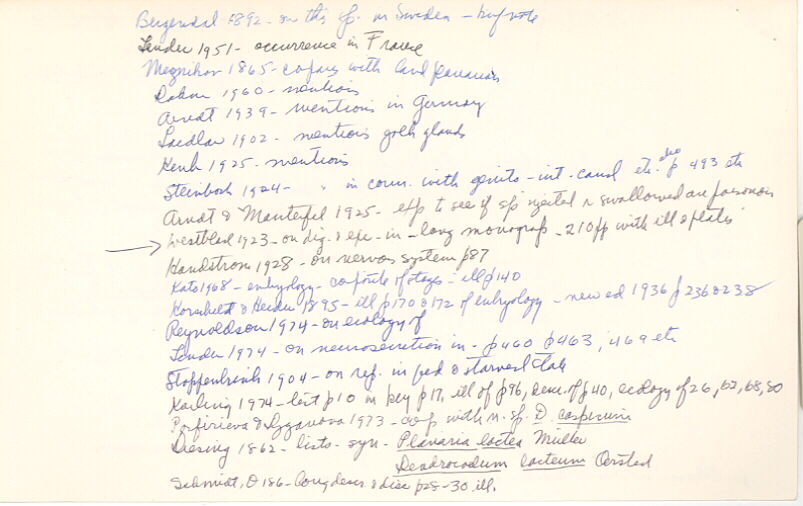 Bergendal 1892 - on this sp. in Sweden - brief note
Lender 1951 - occurrence in France
Meznikov 1865 - compares with land planarians
Dahm 1960 - mentions
Arndt 1939 - mentions in Germany
Laidlaw 1902 - mentions yolk glands
Kenk 1925 - mentions
Steinboch 1924 - " in conn. with genito-int. canal etc. also p 493 etc
Arndt & Manteufel 1925 - exp to see if sp injected or swallowed are poisonous
→ Westblad 1923 - on dig. & exc. in - long monograph - 210pp with ill & plates
Handstrom 1928 - on nervous system p87
Kato 1968 - embryology - composite of stages - ill p140
Korschelt & Heider 1895 - ill p170 & 172 of embryology - new ed 1936 p 236 & 238
Reynoldson 1974 - on ecology of
Lender 1974 - on neurosecretion in - p460 p463, 469 etc
Stoppenbrink 1904 - on rep. in fed & starved state
Karling 1974 - list p10 in key p17, ill of p96, of p40, ecology of 26, 67, 68, 80
Porfirieva & Dyganova 1973 - with n. sp. D. caspicum
Diesing 1862 - lists - syn - Planaria lactea Müller
Dendrocoelum lacteum Oersted
Schmidt, O 186 - long descr & disc p28-30 ill.